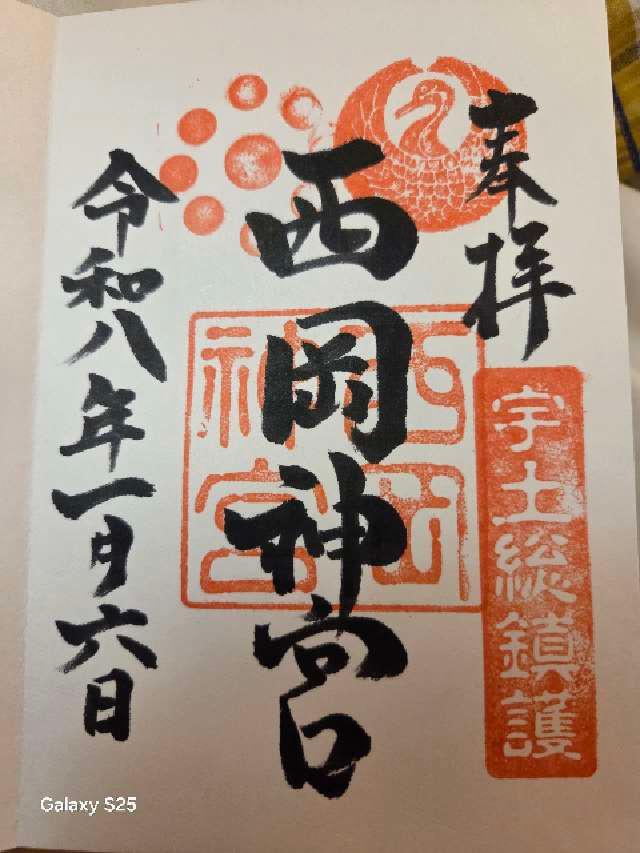 奉拝
宇土総鎮護
西岡神宮
西岡神宮
令和八年一月六日
Galaxy S25